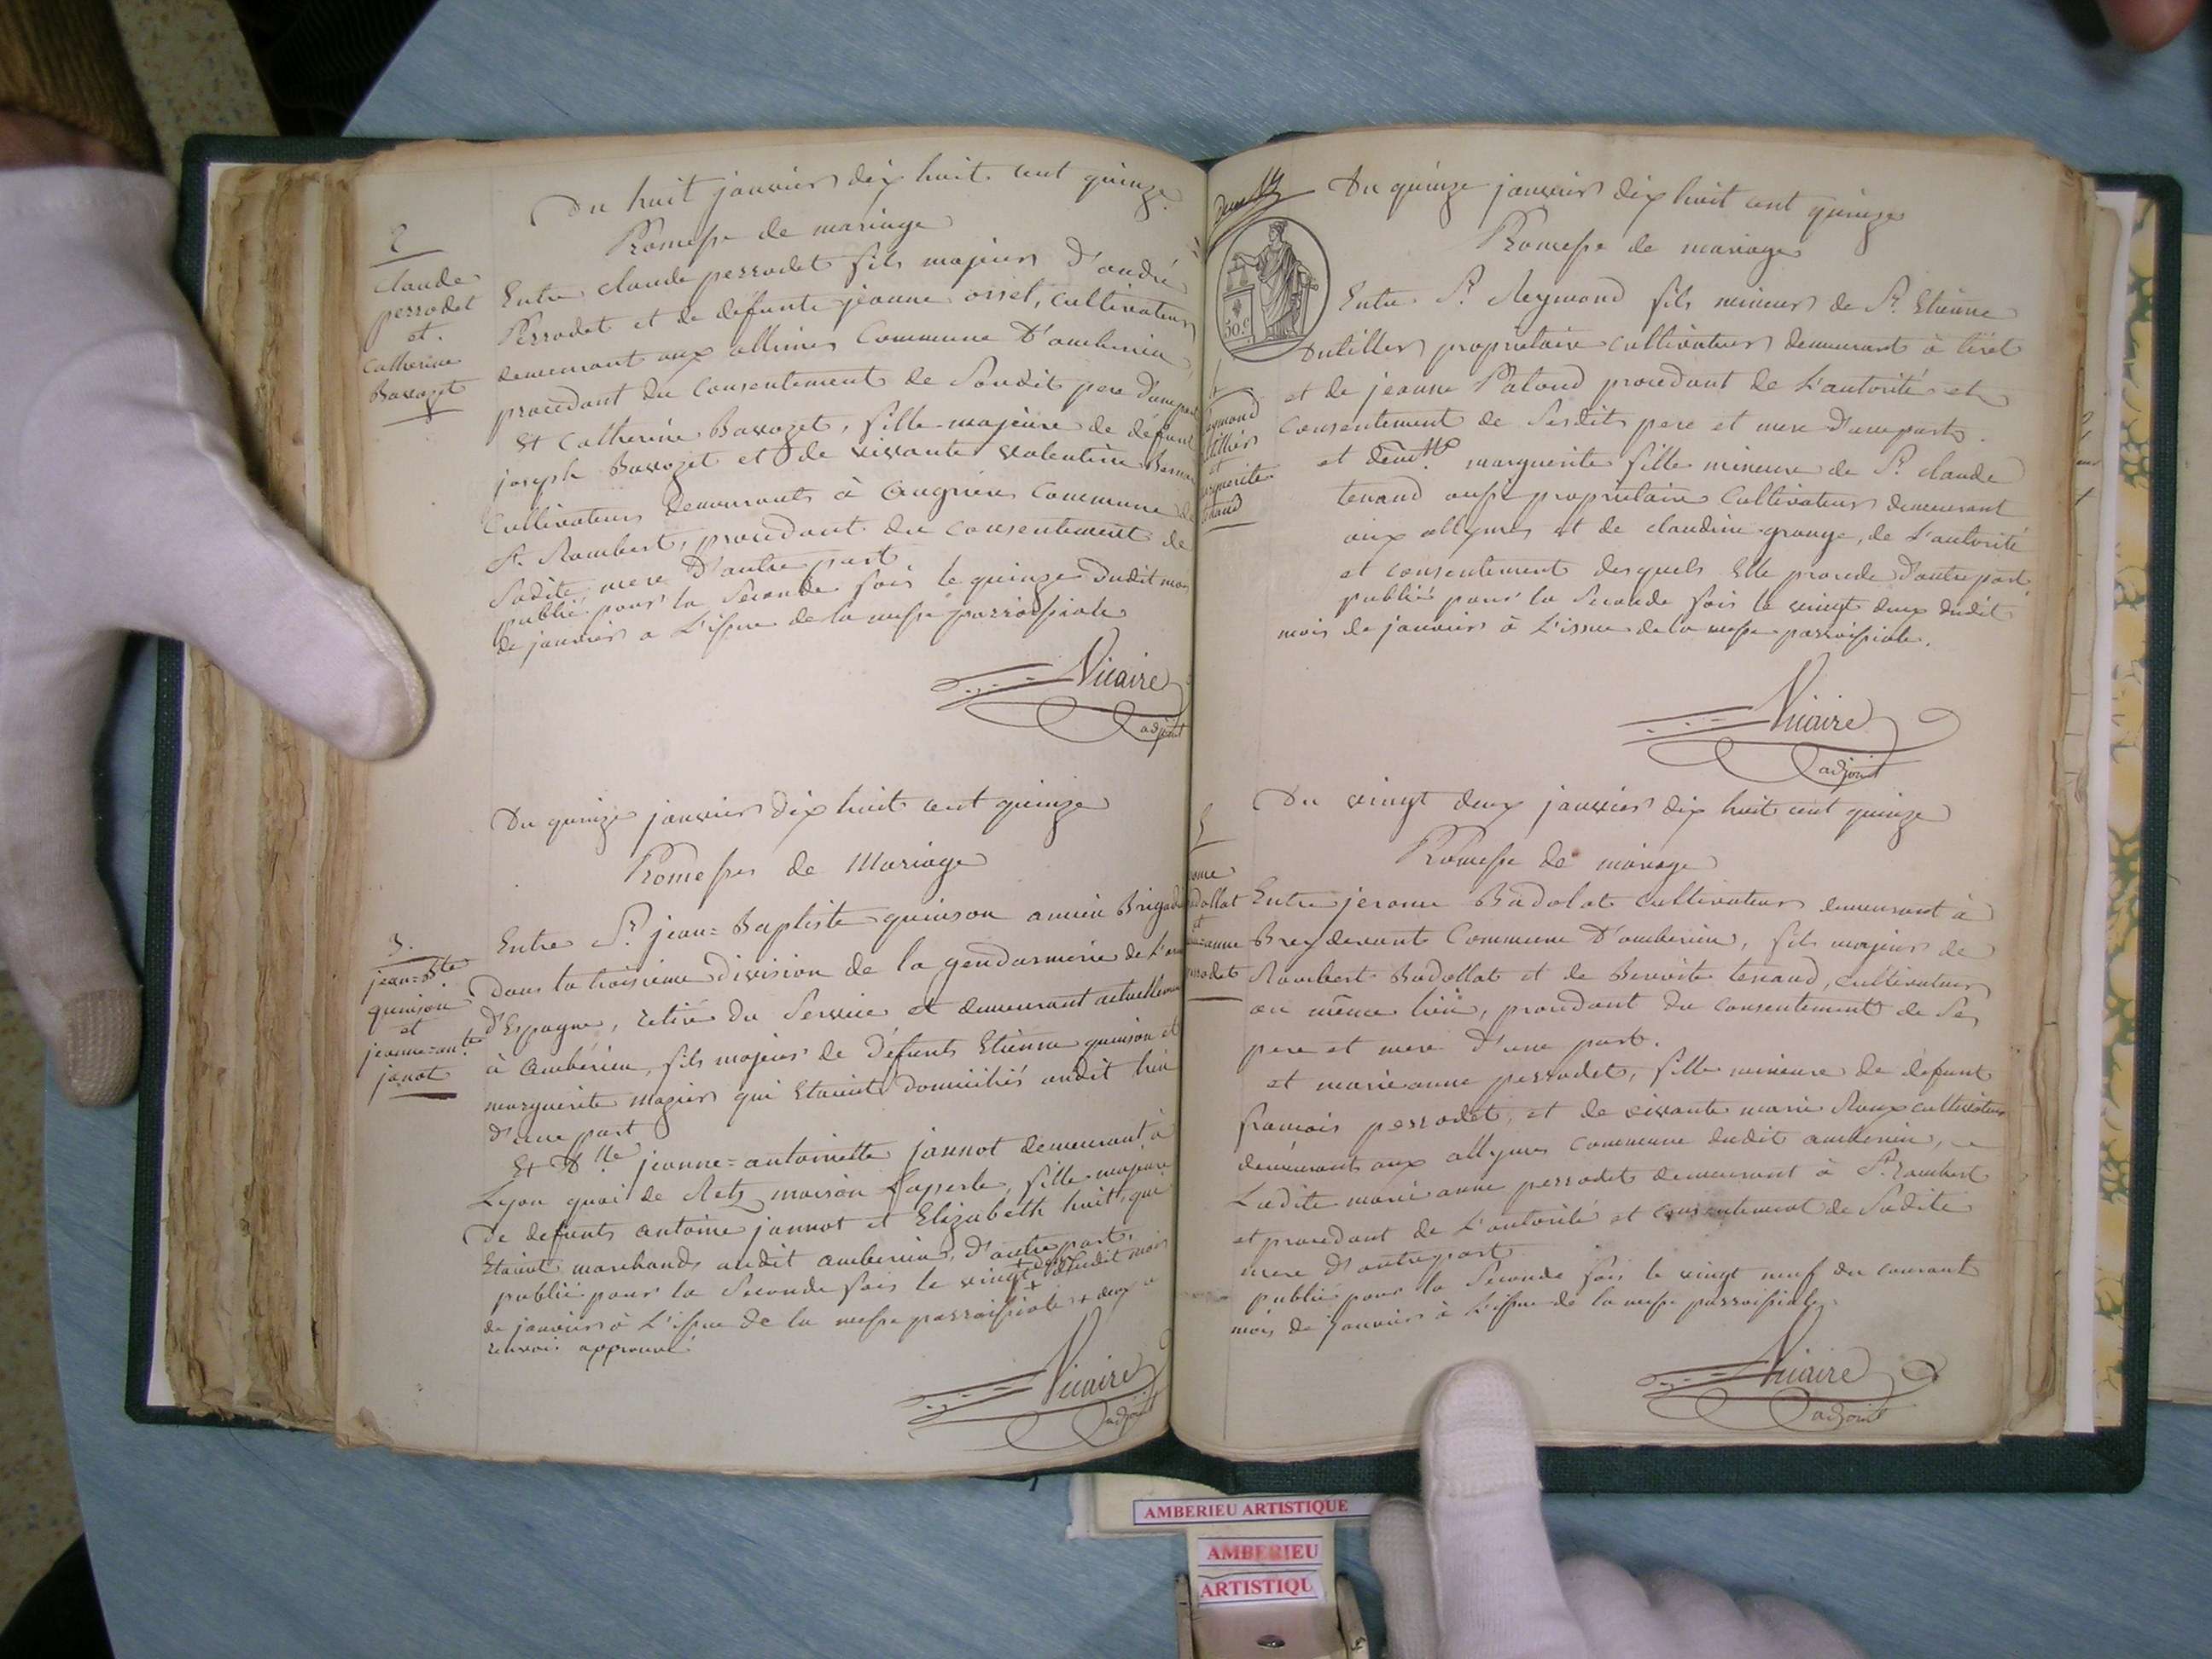 Du huit janvier dix huit cent quinze
Promesse de mariage
2
claude
perrodet
et
Catherine
Bavozet
Entre claude perrodet fils majeur d'andré
Perrodet et de défunte jeanne orset, cultivateur
demeurant aux allimes Commune d'amberieu
procedant du Consentement de Sondit pere d'une part
Et Catherine Bavozet, fille majeure de défunt
joseph Bavozet et de vivante valentine
Cultivateurs demeurants à Angrieres Commune de
St. Rambert, procedant du consentement de
Sadite mere d'autre part
publié pour la Seconde fois le quinze dudit mois
de janvier a L'issue de la messe parroissiale
Vicaire
adjoint
Du quinze janvier dix huit cent quinze
Promesses de Mariage
3.
jean=Bte
quinson
et
jeanne=ante
janot
Entre Sr. jean=Baptiste quinson ancien Brigadier
dans la troisieme division de la gendarmerie de L'armée
d'Espagne, retiré du Service et demeurant actuellement
à Ambérieu, fils majeur de défunts Etienne quinson et
marguerite magier qui Etaient domiciliés audit lieu
d'une part
Et Dlle jeanne=antoinette jannot demeurant à
Lyon quai de Retz maison Laperle, fille majeure
de defunts antoine jannot et Elizabeth huit, qui
Etaient marchands audit amberieu, d'autre part,
publié pour la Seconde fois le vingt + deux dudit mois
de janvier à L'issue de la messe parroissiale + deux
renvoi approuvé
Vicaire
adjoint
Du quinze janvier dix huit cent quinze
Promesse de mariage
30.c
Entre Sr. Reymond fils mineur de Sr. Etienne
Dutillier proprietaire cultivateur demeurant à tiret
et de jeanne Paloud procedant de L'autorité et
Consentement de Sesdits pere et mere d'une part.
et demlle marguerite fille mineure de Sr. claude
tenand aussi proprietaire Cultivateur demeurant
aux allymes et de claudine grange, de L'autorité
et consentement desquels Elle procede d'autre part
publiés pour la Seconde fois le vingt deux dudit
mois de janvier à L'issue de la messe parroissiale.
Vicaire
adjoint
Du vingt deux janvier dix huit cent quinze
Promesse de mariage
5
Entre jerome Badolat cultivateur demeurant à
Breydevent Commune d'amberieu, fils majeur de
Rambert Badollat et de Benoite tenand, cultivateurs
au même lieu, procedant du consentement de Ses
pere et mere d'une part.
et marie anne perrodet, fille mineure de défunt
francois perrodet, et de vivante marie Roux cultivateurs
demeurants aux allymes commune dudit amberieu,
Ladite marie anne perrodet demeurant à St. rambert
et procedant de L'autorité et consentement de Sadite
mere d'autre part
publié pour la Seconde fois le vingt neuf du courant
mois de janvier à L'issue de la messe parroissiale.
Vicaire
adjoint
AMBERIEU ARTISTIQUE
AMBERIEU
ARTISTIQU